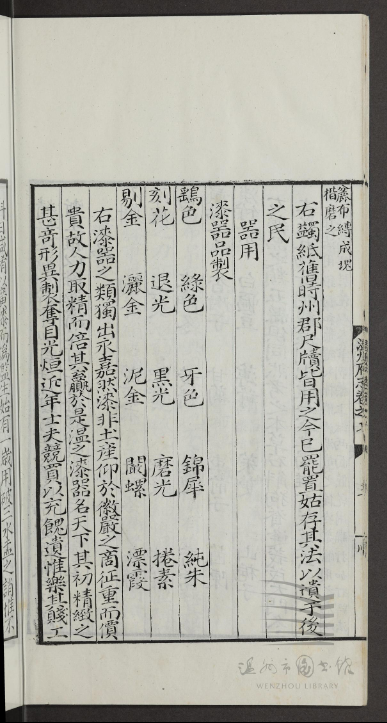 麄布縛成塊
揩磨之
右蠲紙舊時州郡尺牘皆用之今已罷置姑存其法以遺于後
之民
器用
漆器品製
鷀色 綠色 牙色 錦犀 純朱
刻花 退光 黑光 磨光 捲素
剔金 灑金 泥金 闒螺 漂霞
右漆器之類獨出永嘉然漆非土產仰於徽嚴之商征重而價
貴故人力取精而倍其贏於是溫之漆器名天下其初精緻之
甚奇形異製奪目光烜近年士夫競買以充餽遺惟樂其賤工
溫州市圖書館
WENZHOU LIBRARY